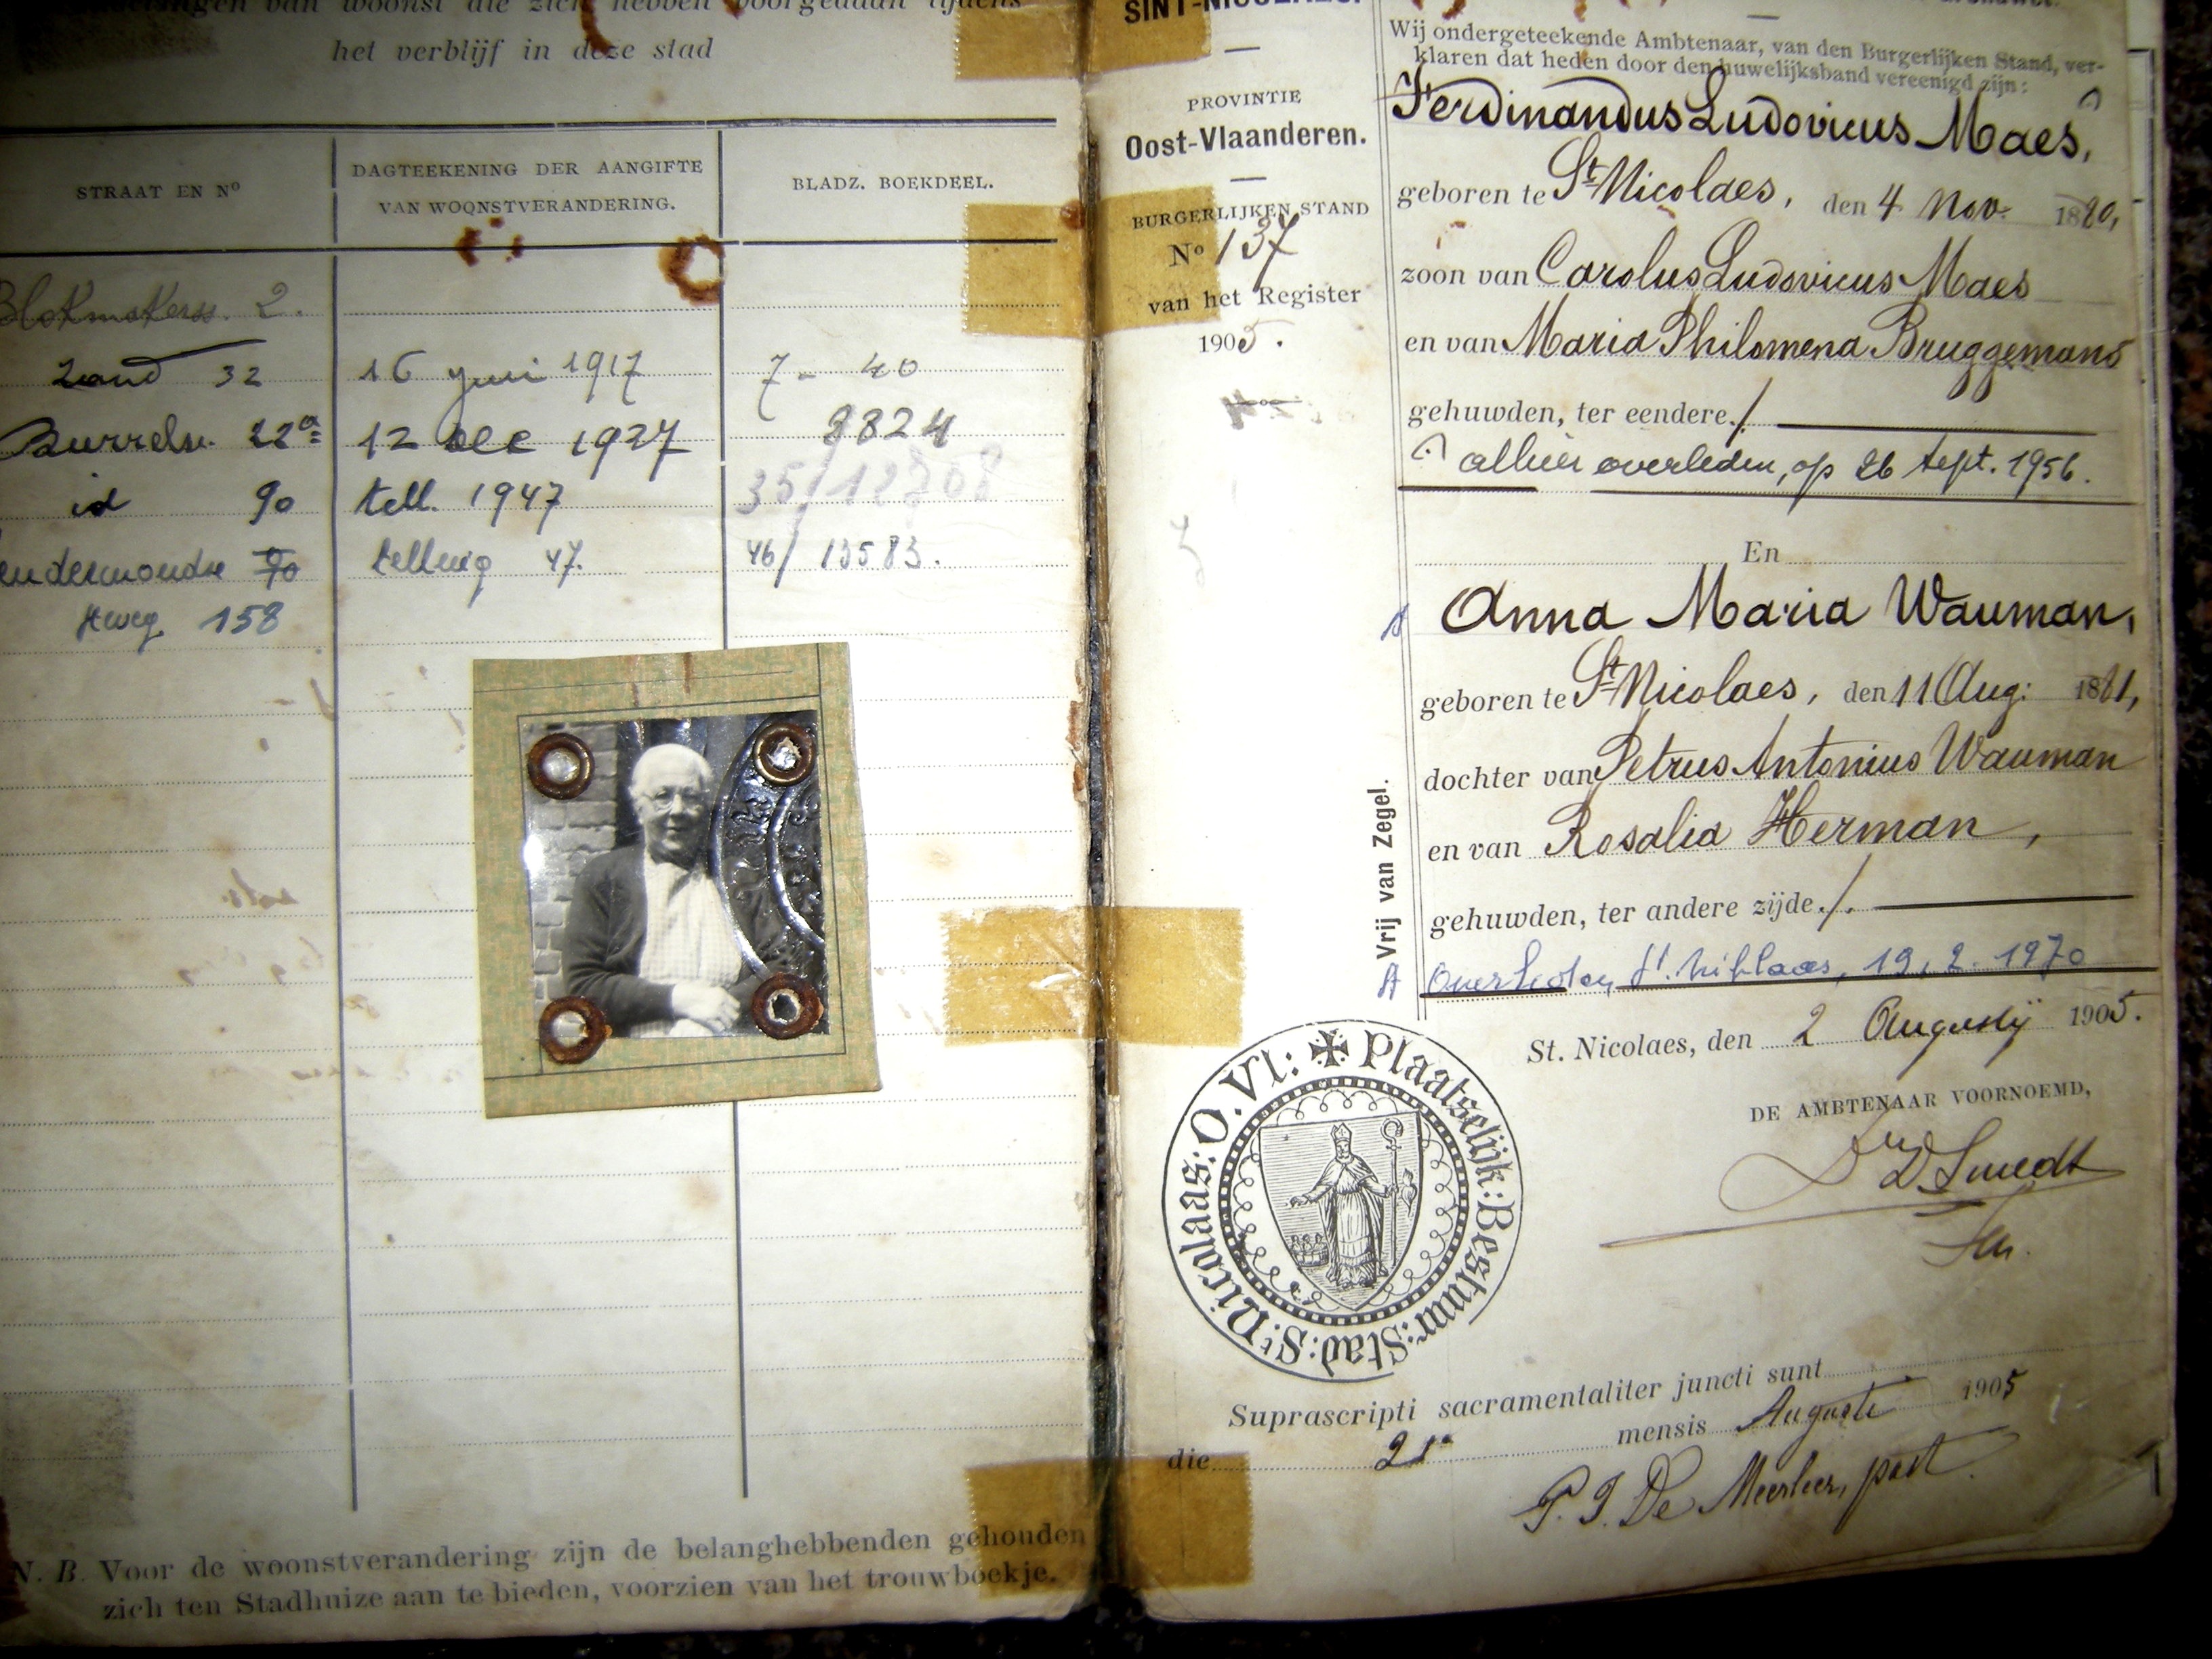 van woonst die zich hebben voorgedaan tijdens
het verblijf in deze stad
STRAAT EN Nº
DAGTEEKENING DER AANGIFTE
VAN WOONSTVERANDERING.
BLADZ. BOEKDEEL.
2.
Zand 32
16 juni 1917
7 - 40
22a
12 dec 1927
8824
id 90
tell. 1947
35/12708
endermondse 90
telling 47.
46/ 13583.
stweg 158
N. B. Voor de woonstverandering zijn de belanghebbenden gehouden
zich ten Stadhuize aan te bieden, voorzien van het trouwboekje.
SINT-NICOLAES.
PROVINTIE
Oost-Vlaanderen.
BURGERLIJKEN STAND
Nº 137
van het Register
1905.
Wij ondergeteekende Ambtenaar, van den Burgerlijken Stand, ver-
klaren dat heden door den huwelijksband vereenigd zijn:
Ferdinandus Ludovicus Maes,
geboren te St Nicolaes, den 4 Nov. 1880,
zoon van Carolus Ludovicus Maes
en van Maria Philomena Bruggemans
gehuwden, ter eendere./
alhier overleden, op 26 sept. 1956.
En
Anna Maria Wauman,
geboren te St Nicolaes, den 11 Aug: 1881,
dochter van Petrus Antonius Wauman
en van Rosalia Herman,
gehuwden, ter andere zijde./.
Overleden St. Niklaas, 19.2.1970
Vrij van Zegel.
St. Nicolaes, den 2 Augusty 1905.
DE AMBTENAAR VOORNOEMD,
D Smedt
Plaatselijk: Bestuur: Stad: St Nicolaas: O. Vl:
Suprascripti sacramentaliter juncti sunt
die 21a mensis Augusti 1905
De Meerleer, past